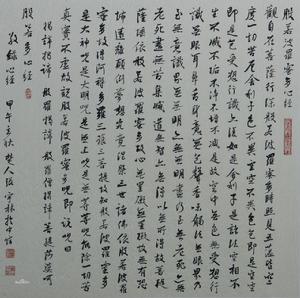 般若波羅蜜多心經
觀自在菩薩行深般若波羅蜜多時照見五蘊皆空
度一切苦厄舍利子色不異空空不異色色即是空空
即是色受想行識亦復如是舍利子是諸法空相不
生不滅不垢不淨不增不減是故空中無色無受想行
識無眼耳鼻舌身意無色聲香味觸法無眼界乃
至無意識界無無明亦無無明盡乃至無老死亦無
老死盡無苦集滅道無智亦無得以無所得故菩提
薩埵依般若波羅蜜多故心無罣礙無罣礙故無有恐
怖遠離顛倒夢想究竟涅槃三世諸佛依般若波羅
蜜多故得阿耨多羅三藐三菩提故知般若波羅蜜多
是大神咒是大明咒是無上咒是無等等咒能除一切苦
真實不虛故說般若波羅蜜多咒即說咒曰
揭諦揭諦 般羅揭諦 般羅僧揭諦 菩提薩婆訶
般若多心經
敬錄心經 甲午秋 楚人張守振於